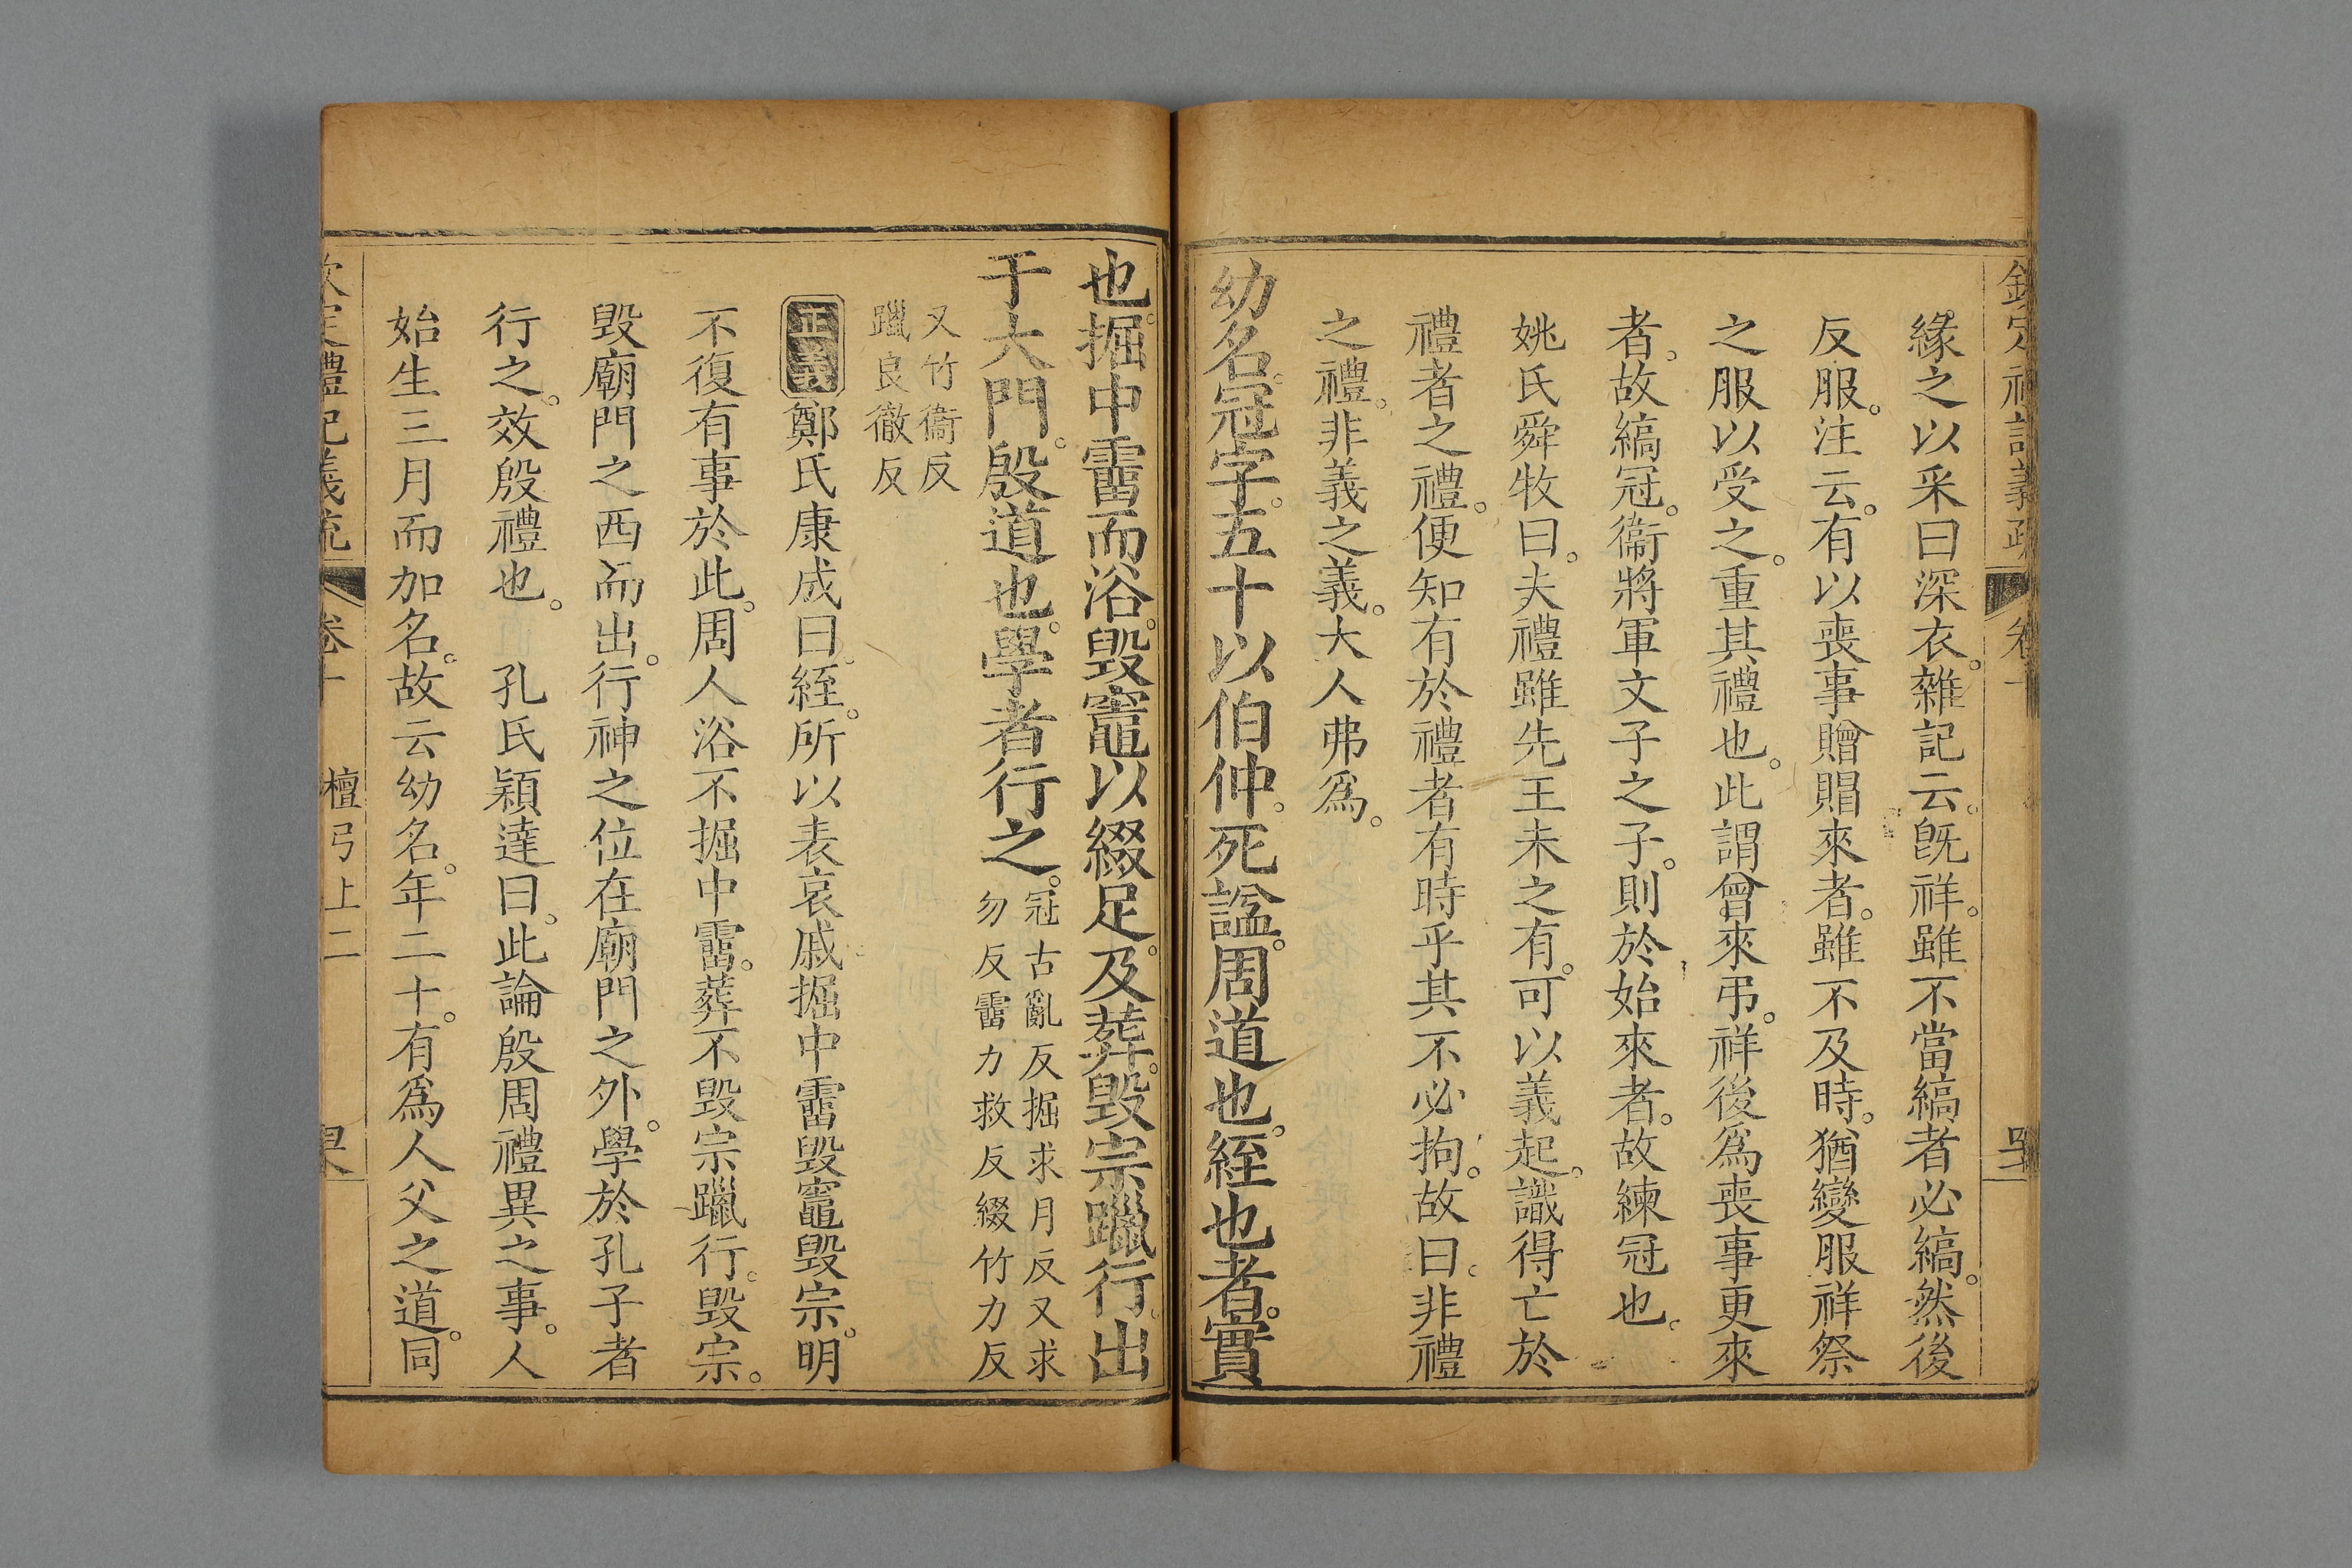 緣之以采曰深衣。雜記云。旣祥。雖不當縞者必縞。然後
反服。注云。有以喪事贈賵來者。雖不及時。猶變服祥祭
之服以受之。重其禮也。此謂曾來弔。祥後爲喪事更來
者。故縞冠。衞將軍文子之子。則於始來者。故練冠也。
姚氏舜牧曰。夫禮雖先王未之有。可以義起。識得亡於
禮者之禮。便知有於禮者有時乎其不必拘。故曰。非禮
之禮。非義之義。大人弗爲。
幼名。冠字。五十以伯仲。死諡。周道也。絰也者。實
也。掘中霤而浴。毀竈以綴足。及葬。毀宗躐行。出
于大門。殷道也。學者行之。
冠古亂反掘求月反又求
勿反霤力救反綴竹力反
又竹衞反
躐良徹反
正義鄭氏康成曰。絰。所以表哀戚掘中霤毀竈毀宗。明
不復有事於此。周人浴不掘中霤。葬不毀宗躐行。毀宗。
毀廟門之西而出。行神之位在廟門之外。學於孔子者
行之。效殷禮也。 孔氏穎達曰。此論殷周禮異之事。人
始生三月而加名。故云幼名。年二十。有爲人父之道。同
禮記義疏 卷十 檀弓上二